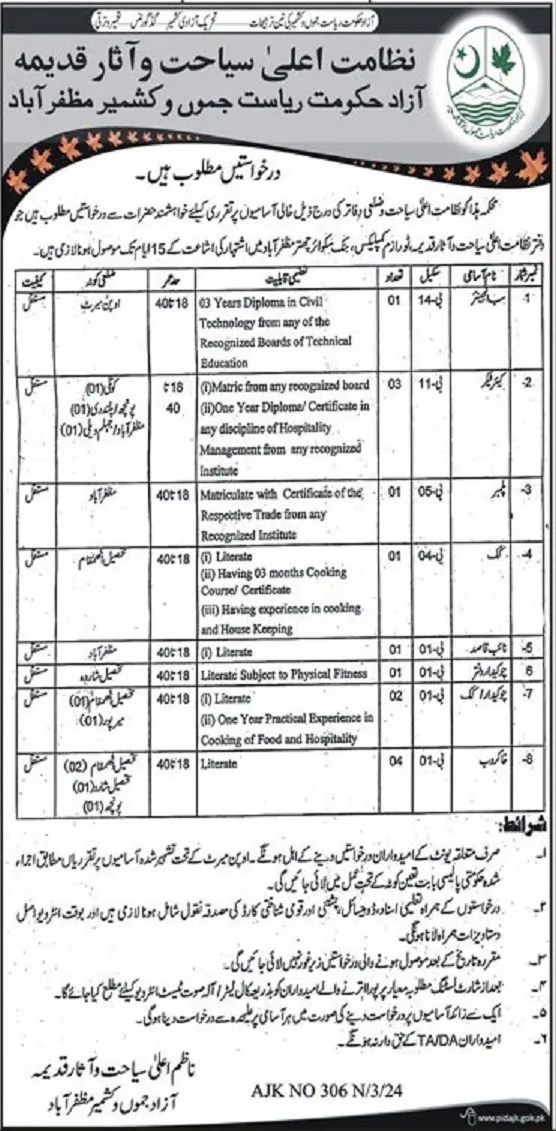 آزاد حکومت ریاست جموں و کشمیر کی تین ترجیحات تحریک آزادی کشمیر گڈ گورننس تعمیر و ترقی
نظامت اعلیٰ سیاحت و آثار قدیمہ
آزاد حکومت ریاست جموں و کشمیر مظفرآباد
درخواستیں مطلوب ہیں۔
محکمہ ہذا کو نظامت اعلیٰ سیاحت و ضلعی دفاتر کی درج ذیل خالی آسامیوں پر تقرری کیلئے خواہشمند حضرات سے درخواستیں مطلوب ہیں جو
دفتر نظامت اعلیٰ سیاحت و آثار قدیمہ، ٹورازم کمپلیکس، بنک سکوائر چھتر مظفرآباد میں اشتہار کی اشاعت کے 15 ایام تک موصول ہونا لازمی ہیں۔
نمبر شمار نام آسامی سکیل تعداد تعلیمی قابلیت حد عمر ضلعی کوٹہ کیفیت
1- سب انجینئر بی-14 01 03 Years Diploma in Civil 18 تا 40 اوپن میرٹ مستقل
Technology from any of the
Recognized Boards of Technical
Education
2- کیئر ٹیکر بی-11 03 (i)Matric from any recognized board 18 تا کوٹلی (01) مستقل
(ii)One Year Diploma/ Certificate in 40 پونچھ/پلندری (01)
any discipline of Hospitality مظفرآباد/جہلم ویلی (01)
Management from any recognized
Institute
3- پلمبر بی-05 01 Matriculate with Certificate of the 18 تا 40 مظفرآباد مستقل
Respective Trade from any
Recognized Institute
4- کک بی-04 01 (i) Literate 18 تا 40 تحصیل اٹھمقام مستقل
(ii) Having 03 months Cooking
Course/ Certificate
(iii) Having experience in cooking
and House Keeping
5- نائب قاصد بی-01 01 (i) Literate 18 تا 40 مظفرآباد مستقل
6 چوکیدار دفتر بی-01 01 Literate Subject to Physical Fitness 18 تا 40 تحصیل شاردہ مستقل
7- چوکیدار/کک بی-01 02 (i) Literate 18 تا 40 تحصیل اٹھمقام (01) مستقل
(ii) One Year Practical Experience in میرپور (01)
Cooking of Food and Hospitality
8- خاکروب بی-01 04 Literate 18 تا 40 تحصیل اٹھمقام (02) مستقل
تحصیل شاردہ (01)
پونچھ (01)
شرائط:
۱۔ صرف متعلقہ یونٹ کے امیدواران درخواستیں دینے کے اہل ہونگے۔ اوپن میرٹ کے تحت تشہیر شدہ آسامیوں پر تقرریاں مطابق اجراء
شدہ حکومتی پالیسی بابت تعین کوٹہ کے تحت عمل میں لائی جائیں گی۔
۲۔ درخواستوں کے ہمراہ تعلیمی اسناد، ڈومیسائل، پشتنی اور قومی شناختی کارڈ کی مصدقہ نقول شامل ہونا لازمی ہیں اور بوقت انٹرویو اصل
دستاویزات ہمراہ لانا ہونگی۔
۳۔ مقررہ تاریخ کے بعد موصول ہونے والی درخواستیں زیر غور نہیں لائی جائیں گی۔
۴۔ بعد از شارٹ لسٹنگ مطلوبہ معیار پر پورا اترنے والے امیدواران کو بذریعہ کال لیٹر/آلہ صوت ٹیسٹ انٹرویو کیلئے مطلع کیا جائے گا۔
۵۔ ایک سے زائد آسامیوں پر درخواست دینے کی صورت میں ہر آسامی پر علیحدہ سے درخواست دینا ہوگی۔
۶۔ امیدواران TA/DA کے حق دار نہ ہونگے۔
ناظم اعلیٰ سیاحت و آثار قدیمہ
آزاد جموں و کشمیر مظفرآباد
AJK NO 306 N/3/24
www.pidajk.gok.pk